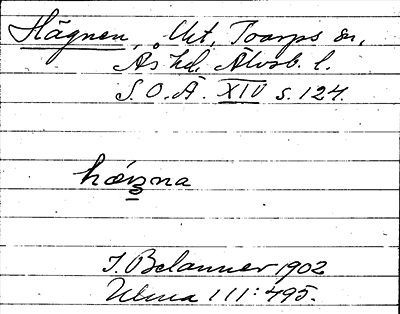 Hägnen, Utt. Toarps sn,
Ås hd, Älvsb. l.
S.O.Ä. XIV s. 124.
I. Belanner 1902
Ulma 111:495.